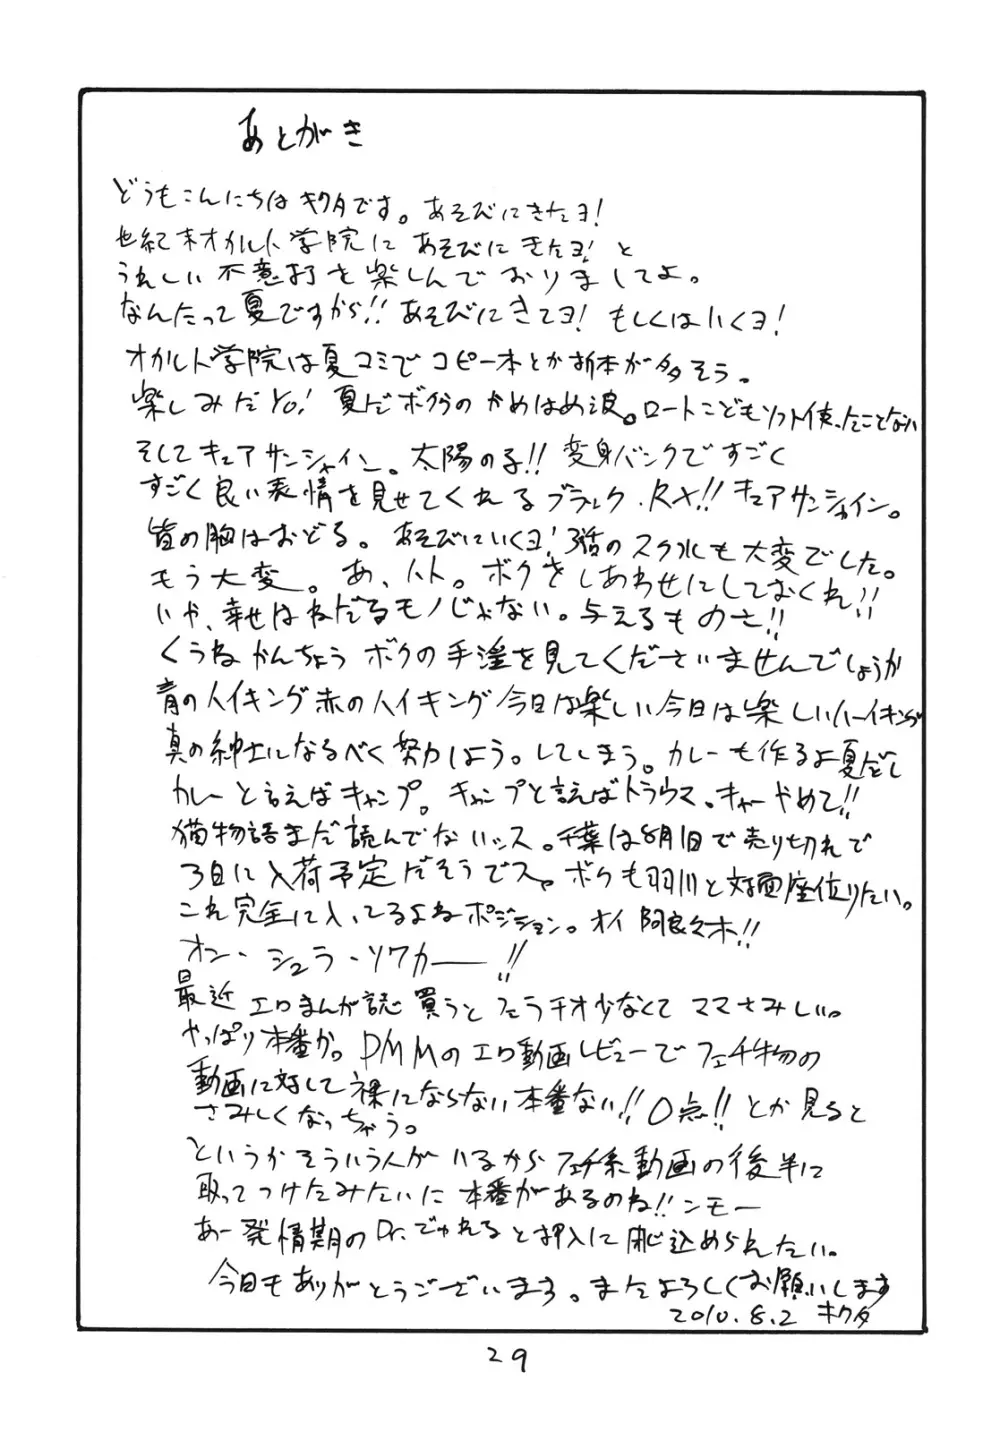 あとがき
どうもこんにちはキクタです。あそびにきたヨ!
世紀末オカルト学院に あそびに きたヨ! と
うれしい 不意打を 楽しんで おりましてよ。
なんたって夏ですから!! あそびにきてヨ! もしくはいくヨ!
オカルト学院は夏コミで コピー本とか新本が多そう。
楽しみだYO! 夏だボクらの かめはめ波。ロートこどもソフト使ったことない
そしてキュアサンシャイン。太陽の子!! 変身バンクですごく
すごく良い表情を見せてくれるブラック・RX!! キュアサンシャイン。
皆の胸はおどる。あそびにいくヨ! 3話のスク水も大変でした。
もう大変。あ、ハト。ボクをしあわせにしておくれ!!
いや、幸せはねだるモノじゃない。与えるものさ!!
くうねかんちょう ボクの手淫を見てくださいませんでしょうか
青のハイキング赤のハイキング今日は楽しい今日は楽しいハーイキング
真の紳士になるべく努力しよう。してしまう。カレーも作るよ夏だし
カレーと言えばキャンプ。キャンプと言えばトラウマ。キャーやめて!!
猫物語まだ読んでないッス。千葉は8月1日で売り切れで
3日に入荷予定だそうでス。ボクも羽川と対面座位りたい。
これ完全に入ってるよねポジション。オイ阿良々木!!
オン・シュラ・ソワカー!!
最近エロまんが誌買うとフェラチオ少なくてママさみしい。
やっぱり本番か。DMMのエロ動画レビューでフェチ物の
動画に対して裸にならない本番ない!! 0点!! とか見ると
さみしくなっちゃう。
というかそういう人がいるからフェチ系動画の後半に
取ってつけたみたいに本番があるのね!! ンモー
あー発情期の Dr.でかれると押入に閉じ込められたい。
今日もありがとうございます。またよろしくお願いします
2010.8.2 キクタ
29